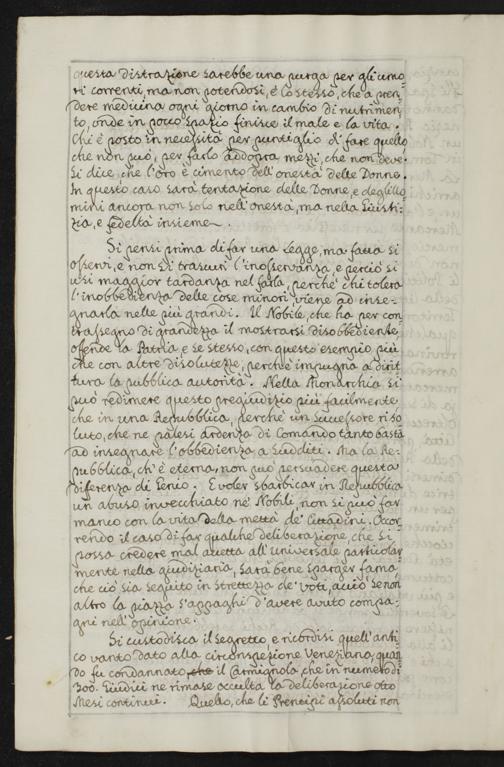 questa distrazione sarebbe una purga per gli umo-
ri correnti, ma non potendosi, è lo stesso, che a pren-
dere medicina ogni giorno in cambio di nutrimen-
to, onde in poco spazio finisce il male e la vita.
Chi è posto in necessità per puntiglio di fare quello
che non può, per farlo addopra mezzi, che non deve.
Si dice, che l'oro è cimento dell'onestà delle Donne.
In questo caso sarà tentazione delle Donne, e degl'Uo-
mini ancora non solo nell'onestà, ma nella Giusti-
zia, e fedeltà insieme.
Si pensi prima di far una Legge, ma fatta si
osservi, e non si trascuri l'inosservanza, e perciò si
usi maggior tardanza nel farla, perche chi tolera
l'inobbedienza delle cose minori viene ad inse-
gnarla nelle più grandi. Il Nobile, che ha per con-
trassegno di grandezza il mostrarsi disobbediente,
offende la Patria, e se stesso, con questo esempio più
che con altre disolutezze, perche impugna a dirit-
tura la pubblica autorità. Nella Monarchia si
può redimere questo pregiudizio più facilmente
che in una Repubblica, perche un successore riso-
luto, che ne palesi ardenza di Comando tanto basta
ad insegnare l'obbedienza a sudditi. Ma la Re-
pubblica, ch'è eterna, non può persuadere questa
differenza di Genio. E voler sbarbicar in Repubblica
un abuso invecchiato ne' Nobili, non si può far
manco con la vita della mettà de' Cittadini. Occor-
rendo il caso di far qualche deliberazione, che si
possa credere mal accetta all'universale particolar-
mente nella giudiziaria, sarà bene sparger fama,
che ciò sia seguito in strettezza de' voti, acciò se non
altro la piazza s'appaghi d'avere avuto compa-
gni nell'opinione.
Si custodisca il segretto, e ricordisi quell'anti-
co vanto dato alla circonspezione Veneziana, quan-
do fu condannato che il Carmignola, che in numero di
300. Giudici ne rimase occulta la deliberazione otto
Mesi continui. Quello, che li Prencipi assoluti non